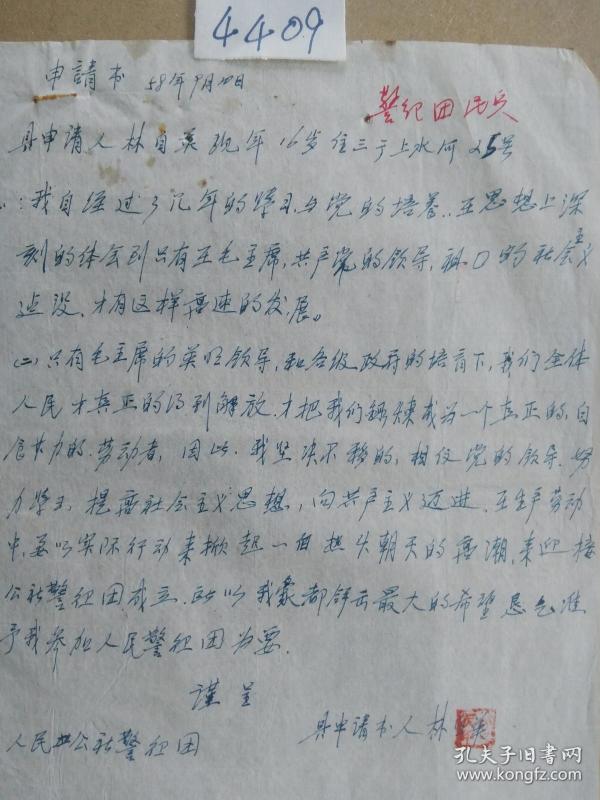 4409
申請书 58年9月10日
警纪团民兵
具申请人林自英现年16岁住三于上水河25号
:我自经过了几年的学习与党的培养..在思想上深
刻的体会到只有在毛主席,共产党的领导,祖囗的社会主义
建设,才有这样高速的发展。
(二)只有毛主席的英明领导,和各级政府的培育下,我们全体
人民才真正的得到解放.才把我们锻炼成为一个真正的.自
食其力的.劳动者,因此.我坚决不移的,相信党的领导.努
力学习,提高社会主义思想,向共产主义迈进,在生产劳动
中,要以实际行动来掀起一个热火朝天的高潮,来迎接
公社警纪团成立.所以我最大的希望恳乞准
予我参加人民警纪团为要.
謹呈
人民公社警纪团
具申请书人林 英
孔夫子旧書网
www.kongfz.com